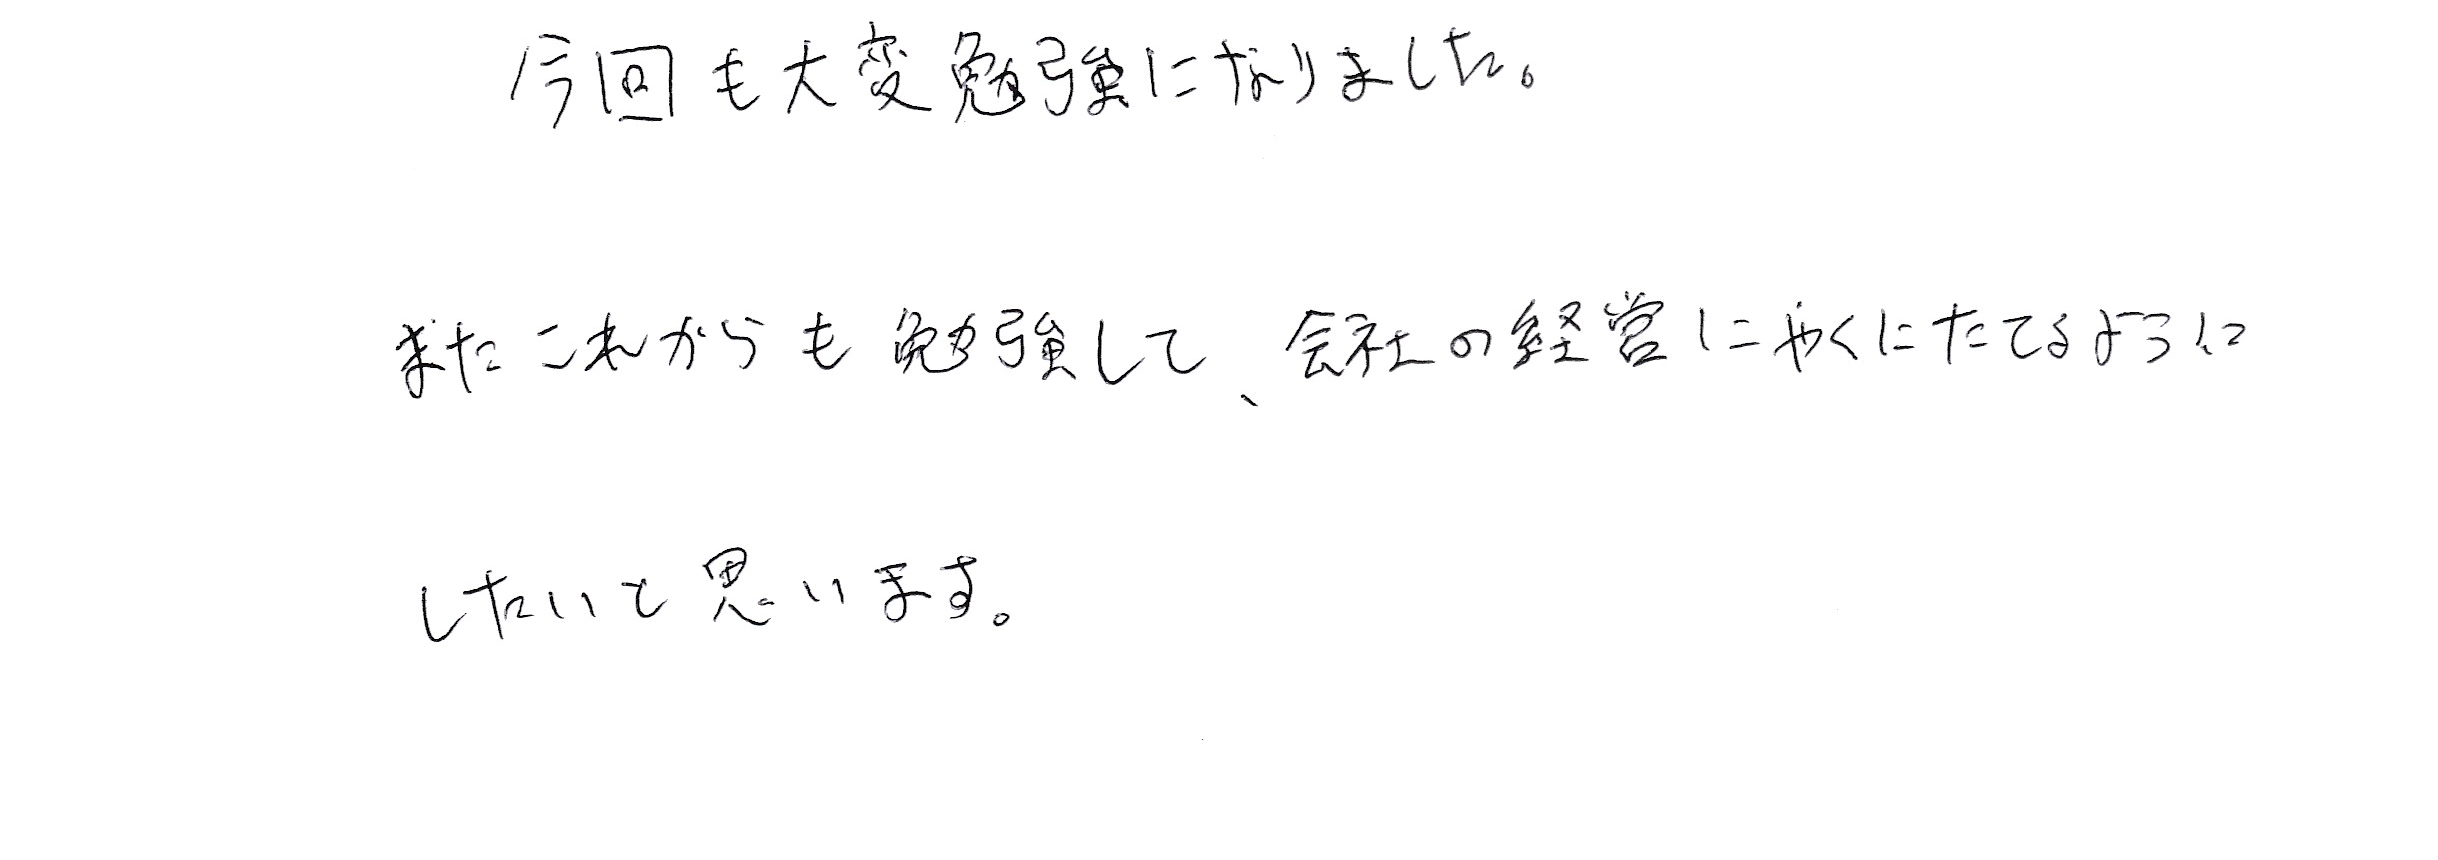 今回も大変勉強になりました。
またこれからも勉強して、会社の経営にやくにたてるように
したいと思います。